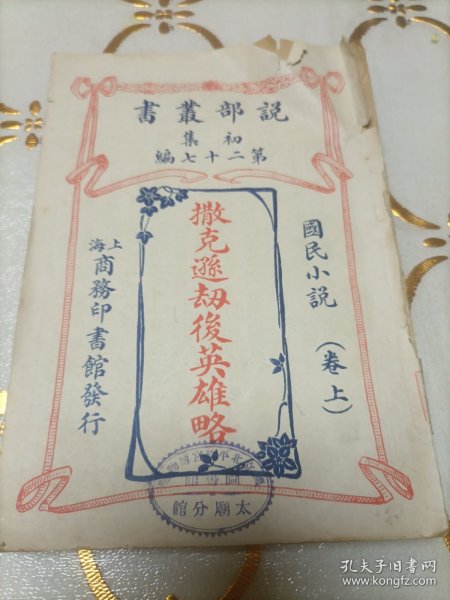 説部叢書
初集
第二十七編
國民小説（卷上）
撒克遜劫後英雄略
上海商務印書館發行
圖書館
太廟分館
孔夫子旧书网
www.kongfz.com